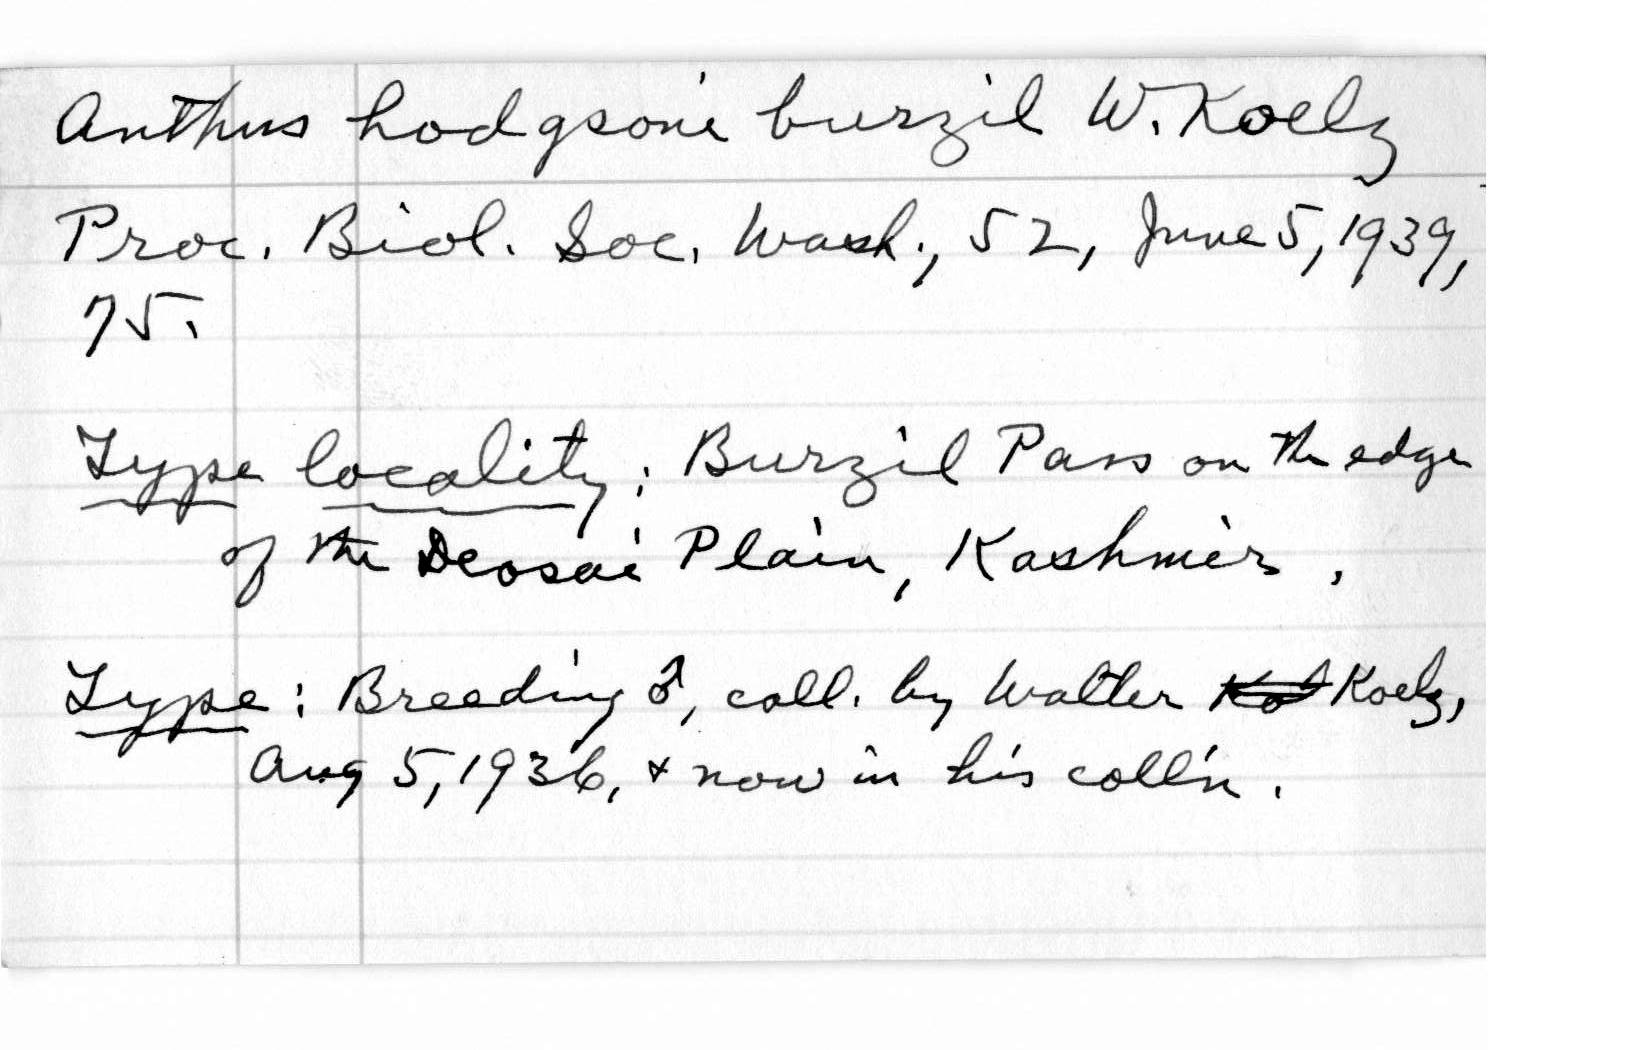 Anthus hodgsoni burzil W. Koelz
Proc. Biol. Soc. Wash., 52, June 5, 1939,
75.
Type locality: Burzil Pass on the edge
of the Deosai Plain, Kashmir.
Type: Breeding ♂, coll. by Walter Koelz,
Aug 5, 1936, & now in his coll'n.